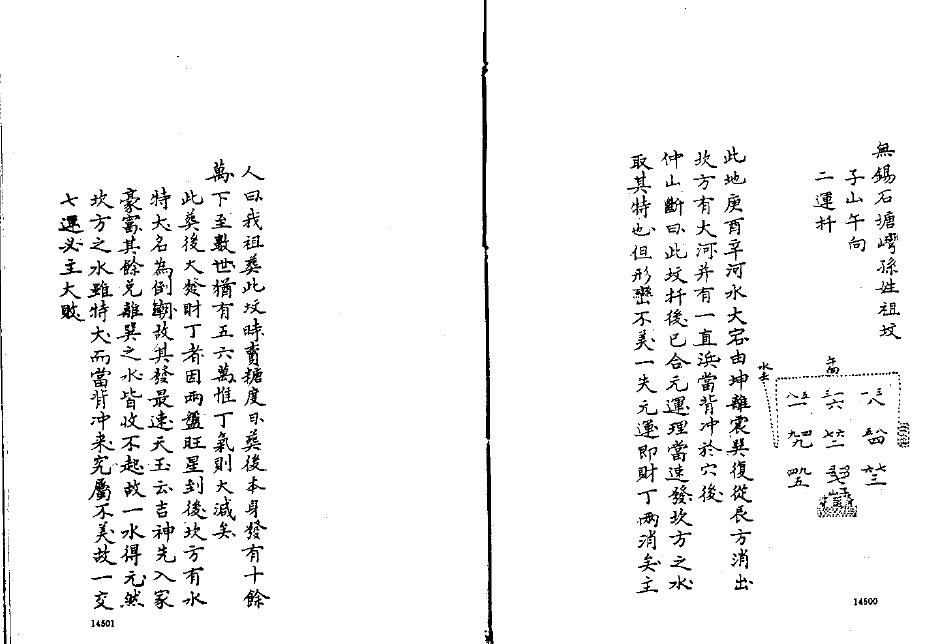 無錫石塘灣孫姓祖坟
子山午向
二運扦
午向
水去
此地庚酉辛河水大宕由坤離震巽復從艮方消出
坎方有大河并有一直浜當背冲於穴後
仲山斷曰此坟扦後已合元運理當速發坎方之水
取其特也但形巒不美一失元運即財丁两消矣主
14500
人曰我祖葬此坟時賣糖度日葬後本身發有十餘
萬下至數世猶有五六萬惟丁氣則大減矣
此葬後大發財丁者因两盤旺星到後坎方有水
特大名為倒潮故其發最速天玉云吉神先入家
豪富其餘兑離巽之水皆收不起故一水得元然
坎方之水雖特大而當背冲来究屬不美故一交
七運必主大敗
14501